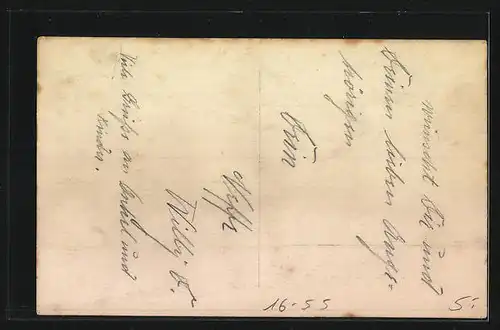 wünscht Dir und
Deinen lieben Ange-
hörigen
Dein
Neffe
Willy F.
Viele Grüße an Onkel und
Kinder.
16-55
S.